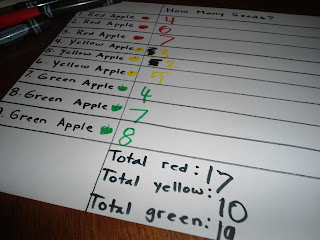 How Many Seeds?
1. Red Apple 4
2. Red Apple 6
3. Red Apple 7
4. Yellow Apple 3
5. Yellow Apple 2
6. Yellow Apple 5
7. Green Apple 4
8. Green Apple 7
9. Green Apple 8
Total red: 17
Total yellow: 10
Total green: 19